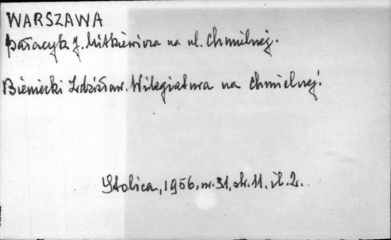 WARSZAWA
Pałacyk J. Mitkiewicza na ul. Chmielnej.
Bieniecki Zdzisław. Wilegiatura na Chmielnej!
Stolica, 1956, nr. 31, str. 11, il. 2.